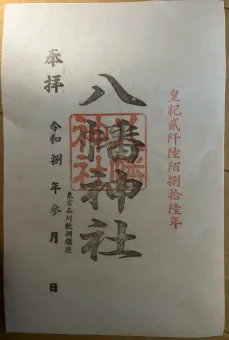 皇紀貳阡陸陌捌拾陸年
八幡神社
東京品川鮫洲鎮座
奉拝
令和捌年参月 日